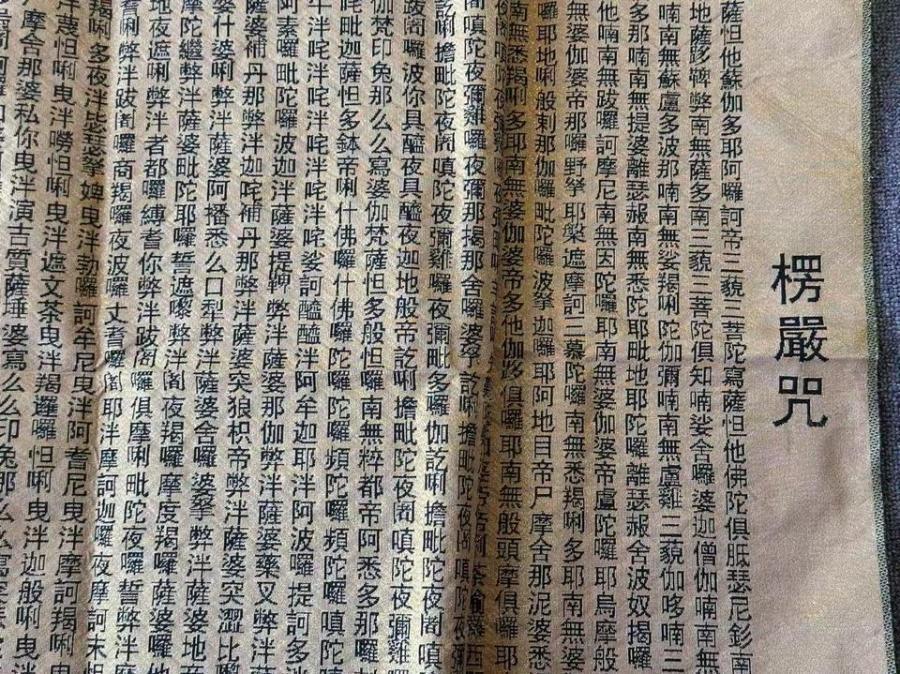 楞嚴咒
薩怛他蘇伽多耶阿囉訶帝三藐三菩陀寫薩怛他佛陀俱胝瑟尼釤南
地薩跢鞞弊南無薩多南三藐三菩陀俱知喃娑舍囉婆迦僧伽喃南無
喃南無蘇盧多波那喃南無娑羯唎陀伽彌喃南無盧雞三藐伽哆喃三
多那喃南無提婆離瑟赧南無悉陀耶毗地耶陀囉離瑟赧舍波奴揭囉
他喃南無跋囉訶摩尼南無因陀囉耶南無婆伽婆帝盧陀囉耶烏摩般
無婆伽婆帝那囉野拏耶槃遮摩訶三慕陀囉南無悉羯唎多耶南無婆
囉耶地唎般剌那伽囉毗陀囉波拏迦囉耶阿地目帝尸摩舍那泥婆悉
南無悉羯唎多耶南無婆伽婆帝多他伽跢俱囉耶南無般頭摩俱囉耶
唎擔毗陀夜闍嗔陀夜彌雞囉夜彌那揭那舍囉婆拏訖唎擔毗陀夜闍嗔陀夜彌
嗔陀夜彌雞囉夜彌毗多囉伽訖唎擔毗陀夜闍嗔
跋闍囉波你具醯夜具醯夜迦地般帝訖唎擔毗陀夜闍嗔陀夜彌雞囉
伽梵印兔那么么寫婆伽梵薩怛多般怛囉南無粹都帝阿悉多那囉
吒毗迦薩怛多鉢帝唎什佛囉什佛囉陀囉陀囉頻陀囉頻陀囉嗔陀
泮吒泮吒泮吒泮吒娑訶醯醯泮阿牟迦耶泮阿波囉提訶多
阿素囉毗陀囉波迦泮薩婆提鞞弊泮薩婆那伽弊泮薩婆藥叉弊泮
薩婆補丹那弊泮迦吒補丹那弊泮薩婆突狼枳帝弊泮薩婆突澀比嚟
婆什婆唎弊泮薩婆阿播悉么口犁弊泮薩婆舍囉婆拏弊泮薩婆地帝
摩陀繼弊泮薩婆毗陀耶囉誓遮嚟弊泮闍夜羯囉摩度羯囉薩婆囉他
地夜遮唎弊泮者都囉縛耆你弊泮跋闍囉俱摩唎毗陀夜囉誓弊泮摩
唎弊泮跋闍囉商羯囉夜波囉丈耆囉闍耶泮摩訶迦囉夜摩訶末怛
羯唎多夜泮毖瑟拏婢曳泮勃囉訶牟尼曳泮阿耆尼曳泮摩訶羯唎曳
泮蔑怛唎曳泮嘮怛唎曳泮遮文茶曳泮羯邏囉怛唎曳泮迦般唎曳泮
摩舍那婆私你曳泮演吉質薩埵婆寫么么印兔那么么寫